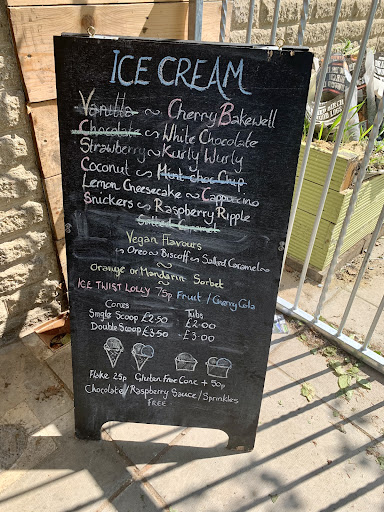 ICE CREAM
Vanilla ~ Cherry Bakewell
Chocolate ~ White Chocolate
Strawberry ~ Kurly Wurly
Coconut ~ Mint Choc Chip
Lemon Cheesecake ~ Cappucino
Snickers ~ Raspberry Ripple
Salted Caramel
Vegan Flavours
~ Oreo ~ Biscoff ~ Salted Caramel ~
~
Orange or Mandarin Sorbet
~
ICE TWIST LOLLY 75p Fruit / Cherry Cola
Cones Tubs
Single Scoop £2.50 £2.00
Double Scoop £3.50 - £3.00
Flake 25p Gluten free Cone + 50p
Chocolate / Raspberry Sauce / Sprinkles
FREE